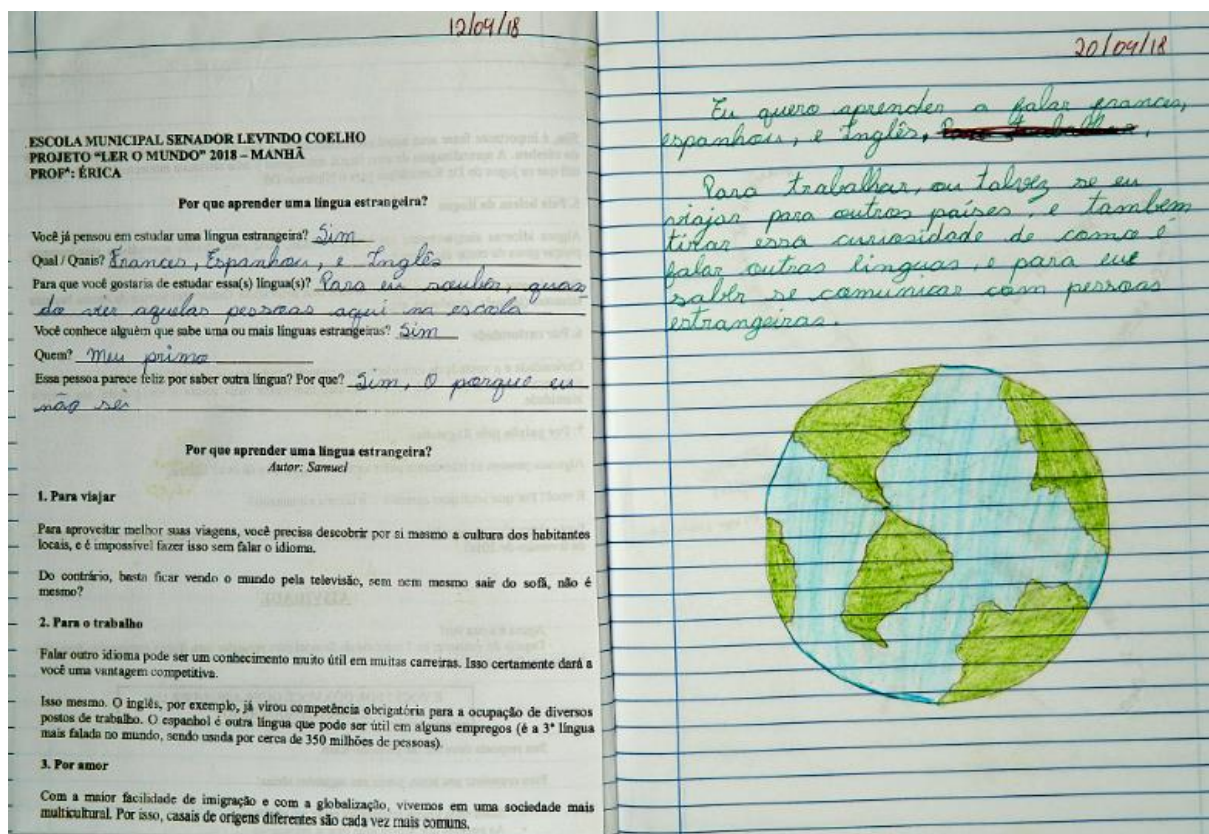 12/04/18
ESCOLA MUNICIPAL SENADOR LEVINDO COELHO
PROJETO “LER O MUNDO” 2018 – MANHÃ
PROFª: ÉRICA
Por que aprender uma língua estrangeira?
Você já pensou em estudar uma língua estrangeira? Sim
Qual / Quais? Frances, Espanhou, e Inglês
Para que você gostaria de estudar essa(s) língua(s)? Para eu saber, quan
do vier aquelas pessoas aqui na escola
Você conhece alguém que sabe uma ou mais línguas estrangeiras? Sim
Quem? Meu primo
Essa pessoa parece feliz por saber outra língua? Por que? Sim, O porque eu
não sei
Por que aprender uma língua estrangeira?
Autor: Samuel
1. Para viajar
Para aproveitar melhor suas viagens, você precisa descobrir por si mesmo a cultura dos habitantes
locais, e é impossível fazer isso sem falar o idioma.
Do contrário, basta ficar vendo o mundo pela televisão, sem nem mesmo sair do sofá, não é
mesmo?
2. Para o trabalho
Falar outro idioma pode ser um conhecimento muito útil em muitas carreiras. Isso certamente dará a
você uma vantagem competitiva.
Isso mesmo. O inglês, por exemplo, já virou competência obrigatória para a ocupação de diversos
postos de trabalho. O espanhol é outra língua que pode ser útil em alguns empregos (é a 3ª língua
mais falada no mundo, sendo usada por cerca de 350 milhões de pessoas).
3. Por amor
Com a maior facilidade de imigração e com a globalização, vivemos em uma sociedade mais
multicultural. Por isso, casais de origens diferentes são cada vez mais comuns.
20/04/18
Eu quero aprender a falar frances,
espanhou, e Inglês,
Para trabalhar, ou talvez se eu
viajar para outros países, e também
tirar essa curiosidade de como é
falar outras linguas, e para eu
saber se comunicar com pessoas
estrangeiras.